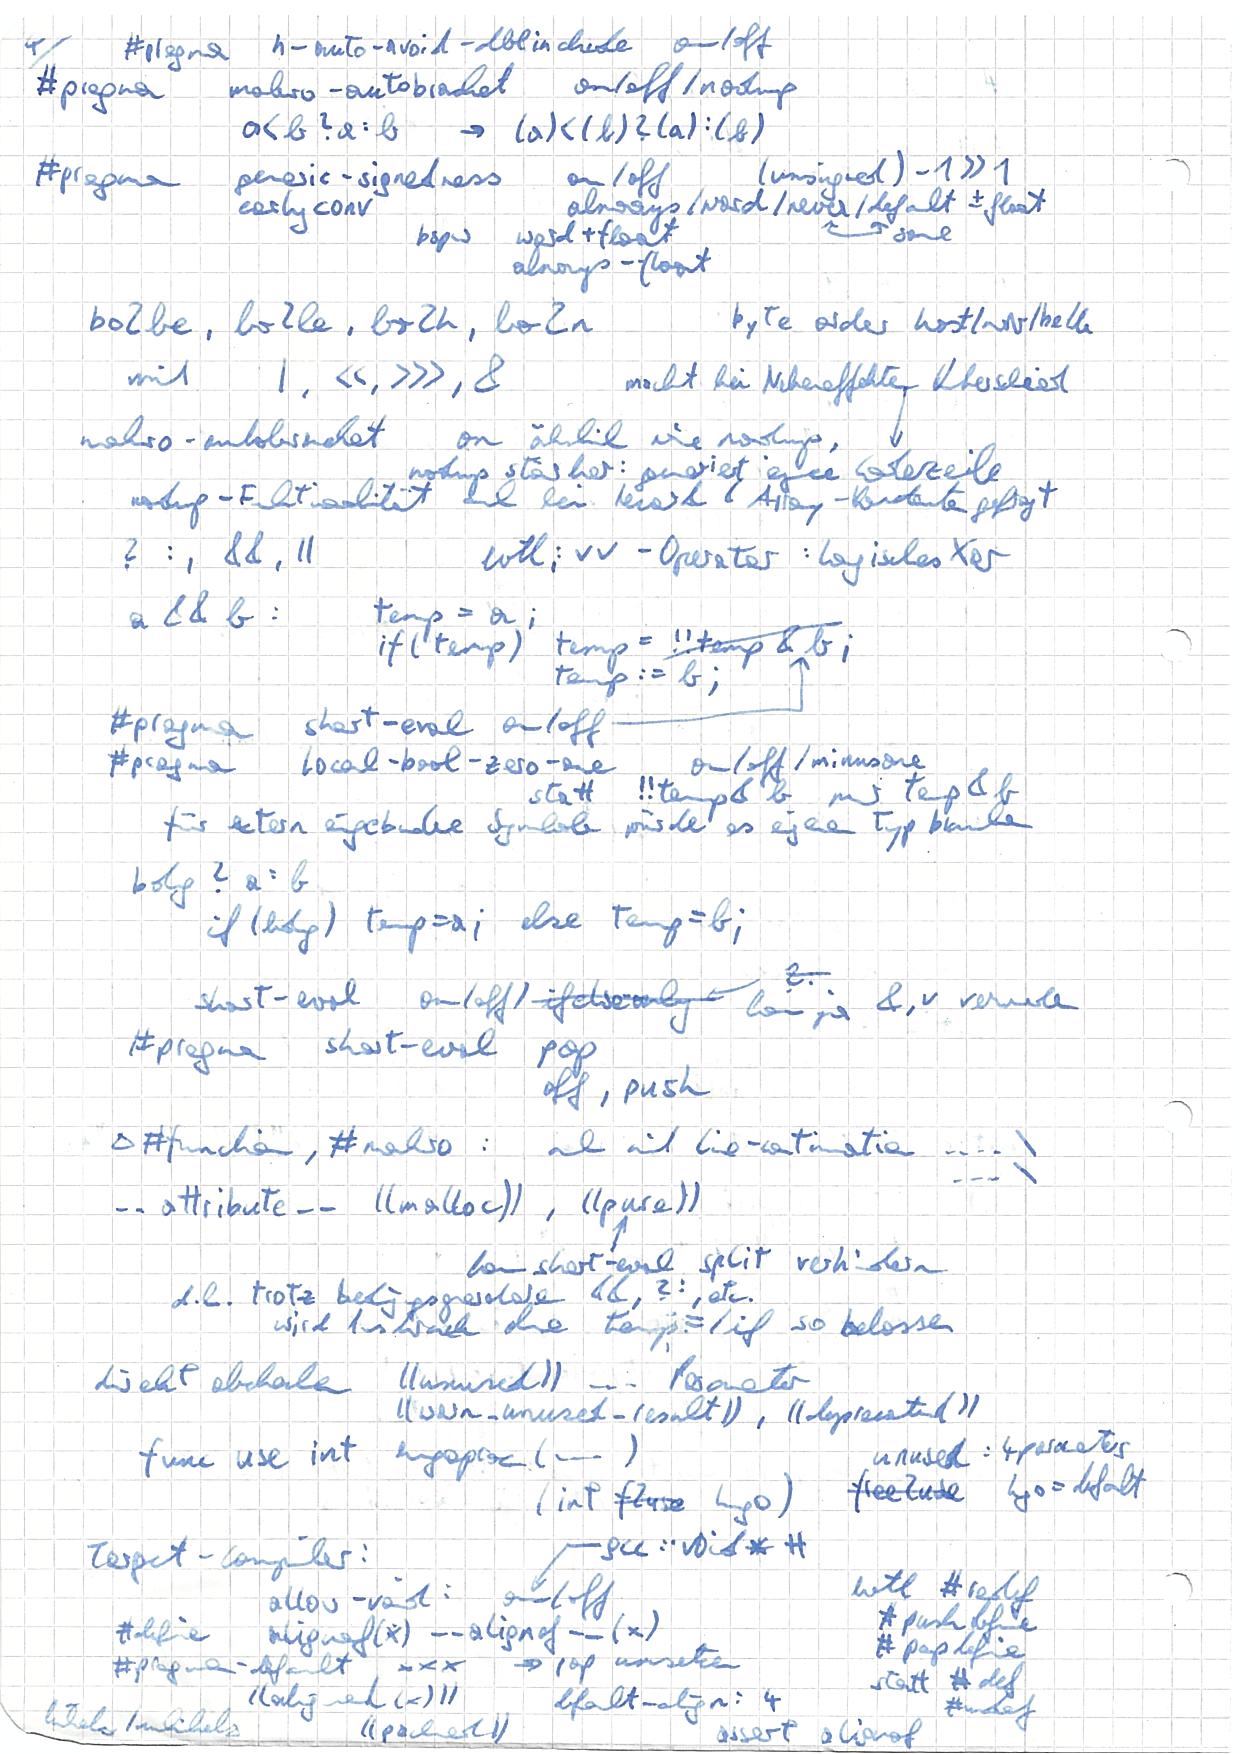 4/ #pragma h-auto-avoid-dblinclude on/off
#pragma makro-autobracket on/off/nodup
a<b?a:b → (a)<(b)?(a):(b)
#pragma generic-signedness on/off (unsigned)-1>>1
early conv always/word/never/default ±float
bspw word+float same
always-float
bo2be, bo2le, bo2h, bo2n byte order host/nw/be/le
mit |, <<, >>>, & macht bei Nebeneffekten Unterschied
makro-autobracket on ähnlich wie nodup,
nodup stärker: generiert eigene Codezeile
nodup-Funktionalität auch bei Array-Konstante gefragt
? :, &&, || evtl; vv -Operator : logisches Xor
a && b : temp = a;
if(temp) temp = !!temp & b;
temp := b;
#pragma short-eval on/off
#pragma local-bool-zero-one on/off/minusone
statt !!temp & b nur temp & b
für extern eingebundene Symbole würde es eigenen Typ brauchen
bdg ? a : b
if (bdg) temp=a; else temp=b;
?:
short-eval on/off/ ifelseonly kann ja &,v verwenden
#pragma short-eval pop
off, push
#function, #makro : mit line-continuation ---- \
--- \
-- attribute -- ((malloc)), ((pure))
kann short-eval split verhindern
d.h. trotz &&, ?:, etc.
wird Ausdruck ohne temp=/if so belassen
direkt ((unused)) --- Parameter
((warn-unused-result)), ((deprecated))
func use int hugoproc (---) unused : 4 parameters
(int fluse hugo) free2use hugo = default
Target-Compiler: gcc : void* #
allow-void : on/off evtl #redef
#define alignof(x) --alignof--(x) #pushdefine
#popdefine
#pragma-default xxx → top umsetzen statt #def
((aligned(x))) default-align: 4 #undef
((packed)) assert alignof